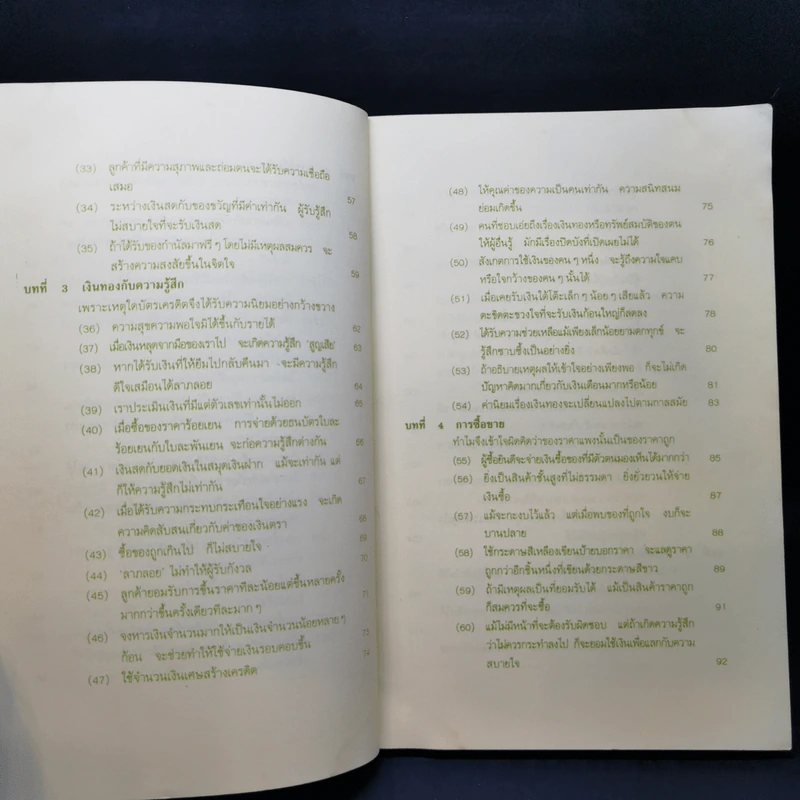 (33) ลูกค้าที่มีความสุภาพและถ่อมตนจะได้รับความเชื่อถือ
เสมอ 57
(34) ระหว่างเงินสดกับของขวัญที่มีค่าเท่ากัน ผู้รับรู้สึก
ไม่สบายใจที่จะรับเงินสด 58
(35) ถ้าได้รับของกำนัลมาฟรีๆ โดยไม่มีเหตุผลสมควร จะ
สร้างความสงสัยขึ้นในจิตใจ 59
บทที่ 3 เงินทองกับความรู้สึก
เพราะเหตุใดบัตรเครดิตจึงได้รับความนิยมอย่างกว้างขวาง
(36) ความสุขความพอใจมิได้ขึ้นกับรายได้ 62
(37) เมื่อเงินหลุดจากมือของเราไป จะเกิดความรู้สึก 'สูญเสีย' 63
(38) หากได้รับเงินที่ให้ยืมไปกลับคืนมา จะมีความรู้สึก
ดีใจเสมือนได้ลาภลอย 64
(39) เราประเมินเงินที่มีแต่ตัวเลขเท่านั้นไม่ออก 65
(40) เมื่อซื้อของราคาร้อยเยน การจ่ายด้วยธนบัตรใบละ
ร้อยเยนกับใบละพันเยน จะก่อความรู้สึกต่างกัน 66
(41) เงินสดกับยอดเงินในสมุดเงินฝาก แม้จะเท่ากัน แต่
ก็ให้ความรู้สึกไม่เท่ากัน 67
(42) เมื่อได้รับความกระทบกระเทือนใจอย่างแรง จะเกิด
ความคิดสับสนเกี่ยวกับค่าของเงินตรา 68
(43) ซื้อของถูกเกินไป ก็ไม่สบายใจ 69
(44) 'ลาภลอย' ไม่ทำให้ผู้รับกังวล 70
(45) ลูกค้ายอมรับการขึ้นราคาทีละน้อยแต่ขึ้นหลายครั้ง
มากกว่าขึ้นครั้งเดียวทีละมากๆ 71
(46) จงหารเงินจำนวนมากให้เป็นเงินจำนวนน้อยหลายๆ
ก้อน จะช่วยทำให้ใช้จ่ายเงินรอบคอบขึ้น 73
(47) ใช้จำนวนเงินเศษสร้างเครดิต 74
(48) ให้คุณค่าของความเป็นคนเท่ากัน ความสนิทสนม
ย่อมเกิดขึ้น 75
(49) คนที่ชอบเอ่ยถึงเรื่องเงินทองหรือทรัพย์สมบัติของตน
ให้ผู้อื่นรู้ มักมีเรื่องปิดบังที่เปิดเผยไม่ได้ 76
(50) สังเกตการใช้เงินของคนๆ หนึ่ง จะรู้ถึงความใจแคบ
หรือใจกว้างของคนๆ นั้นได้ 77
(51) เมื่อเคยรับเงินใต้โต๊ะเล็กๆ น้อยๆ เสียแล้ว ความ
ตะขิดตะขวงใจที่จะรับเงินก้อนใหญ่ก็ลดลง 78
(52) ได้รับความช่วยเหลือแม้เพียงเล็กน้อยยามตกทุกข์ จะ
รู้สึกซาบซึ้งเป็นอย่างยิ่ง 80
(53) ถ้าอธิบายเหตุผลให้เข้าใจอย่างเพียงพอ ก็จะไม่เกิด
ปัญหาคิดมากเกี่ยวกับเงินเดือนมากหรือน้อย 81
(54) ค่านิยมเรื่องเงินทองจะเปลี่ยนแปลงไปตามกาลสมัย 83
บทที่ 4 การซื้อขาย
ทำไมจึงเข้าใจผิดคิดว่าของราคาแพงนั้นเป็นของราคาถูก
(55) ผู้ซื้อยินดีจะจ่ายเงินซื้อของที่มีตัวตนมองเห็นได้มากกว่า 85
(56) ยิ่งเป็นสินค้าชั้นสูงที่ไม่ธรรมดา ยิ่งยั่วยวนให้จ่าย
เงินซื้อ 87
(57) แม้จะกะงบไว้แล้ว แต่เมื่อพบของที่ถูกใจ งบก็จะ
บานปลาย 88
(58) ใช้กระดาษสีเหลืองเขียนป้ายบอกราคา จะแลดูราคา
ถูกกว่าอีกชิ้นหนึ่งที่เขียนด้วยกระดาษสีขาว 89
(59) ถ้ามีเหตุผลเป็นที่ยอมรับได้ แม้เป็นสินค้าราคาถูก
ก็สมควรที่จะซื้อ 91
(60) แม้ไม่มีหน้าที่จะต้องรับผิดชอบ แต่ถ้าเกิดความรู้สึก
ว่าไม่ควรกระทำลงไป ก็จะยอมใช้เงินเพื่อแลกกับความ
สบายใจ 92